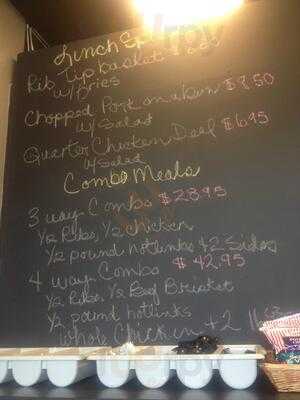 Lunch
Rib Tip basket
w/Fries
Chopped Pork on a bun $8.50
w/Salad
Quarter Chicken Deal $6.95
w/Salad
Combo Meals
3 way Combo $28.95
1/2 Ribs, 1/2 chicken
1/2 pound hotlinks + 2 Sides
4 way Combo $42.95
1/2 Ribs 1/2 Beef Brisket
1/2 pound hotlinks
whole Chicken + 2